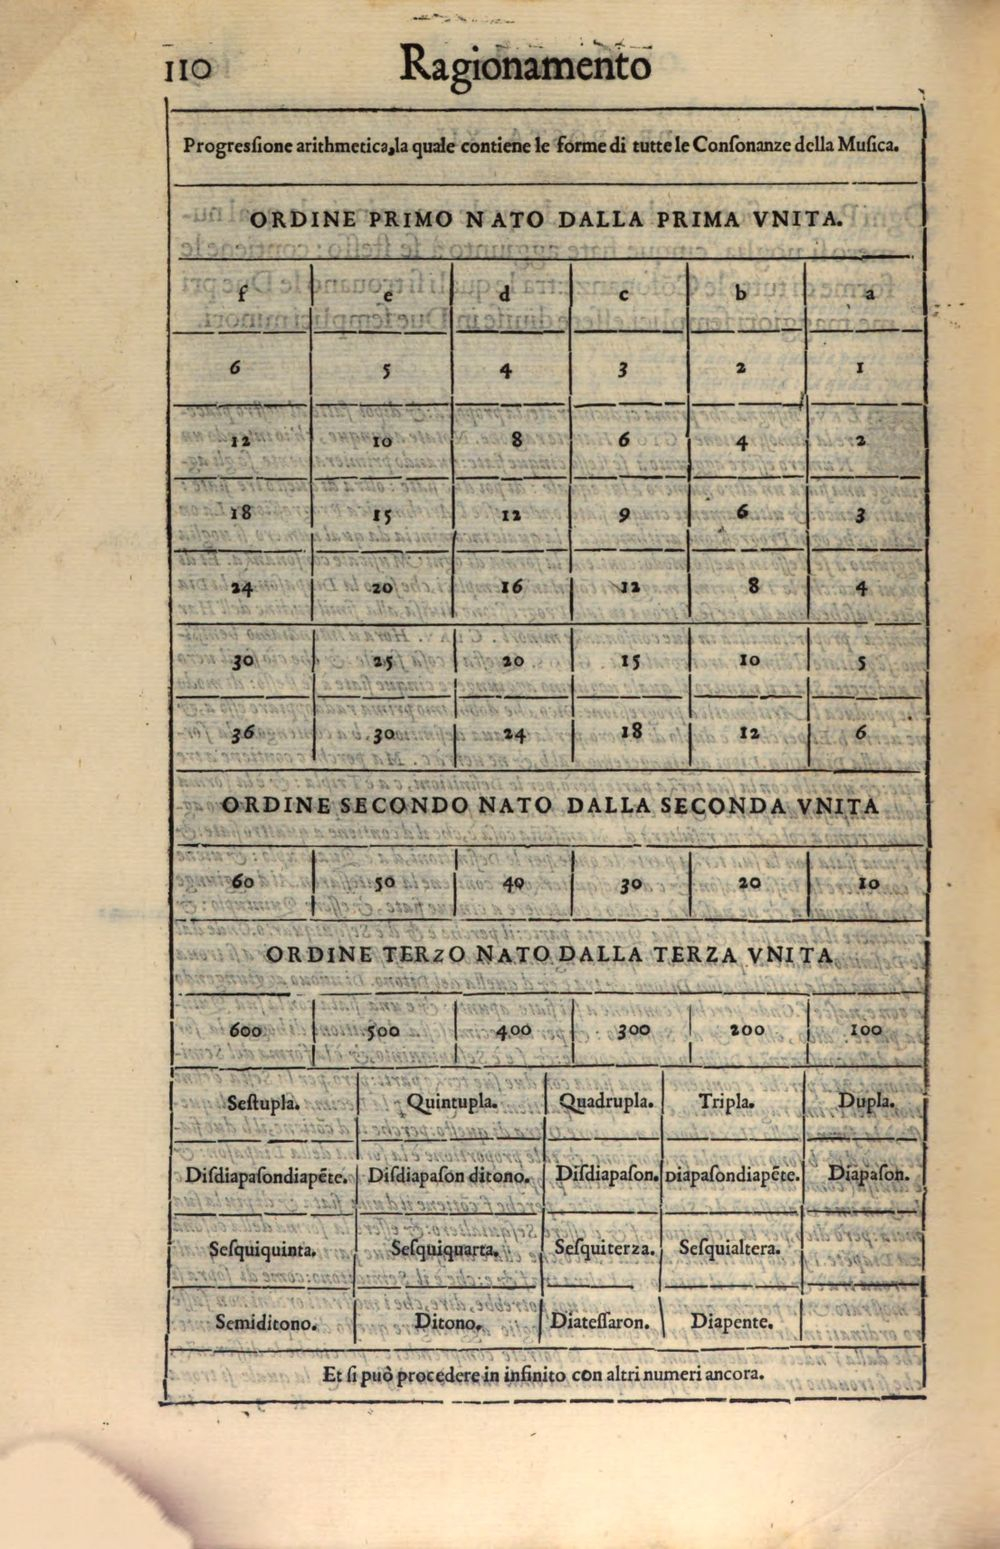 110 Ragionamento
Progreſſione arithmetica,la quale contiene le forme di tutte le Conſonanze della Muſica.
ORDINE PRIMO NATO DALLA PRIMA VNITA.
f e d c b a
6 5 4 3 2 1
12 10 8 6 4 2
18 15 12 9 6 3
24 20 16 12 8 4
30 25 20 15 10 5
36 30 24 18 12 6
ORDINE SECONDO NATO DALLA SECONDA VNITA
60 50 40 30 20 10
ORDINE TERZO NATO DALLA TERZA VNITA
600 500 400 300 200 100
Seſtupla. Quintupla. Quadrupla. Tripla. Dupla.
Diſdiapaſondiapēte. Diſdiapaſon ditono. Diſdiapaſon. Diapaſondiapēte. Diapaſon.
Seſquiquinta. Seſquiquarta. Seſquiterza. Seſquialtera.
Semiditono. Ditono. Diateſſaron. Diapente.
Et ſi può procedere in infinito con altri numeri ancora.